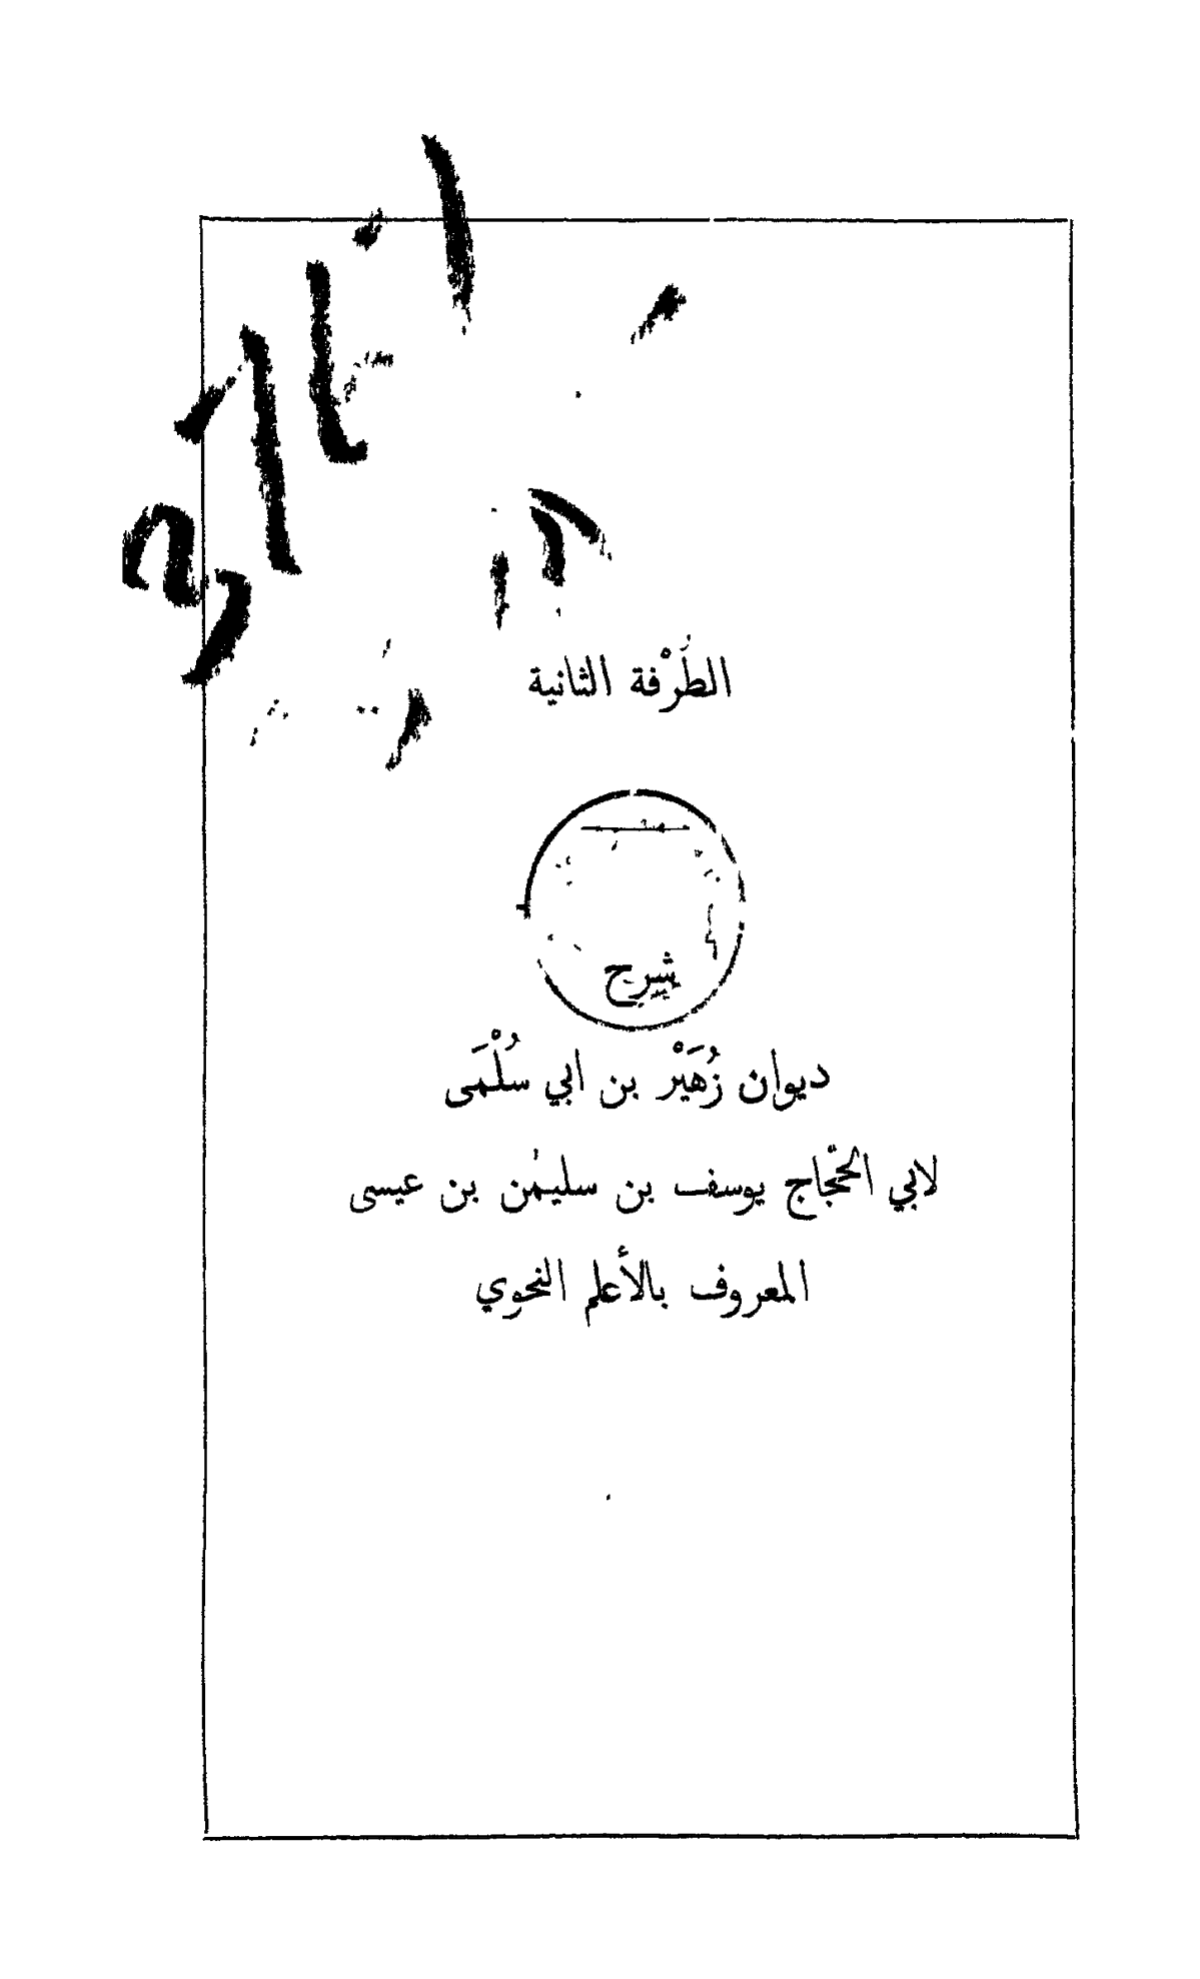 الطُرْفة الثانية
شرح
ديوان زُهَيْر بن ابي سُلْمَى
لابي الحجّاج يوسف بن سليمٰن بن عيسى
المعروف بالأعلم النحوي